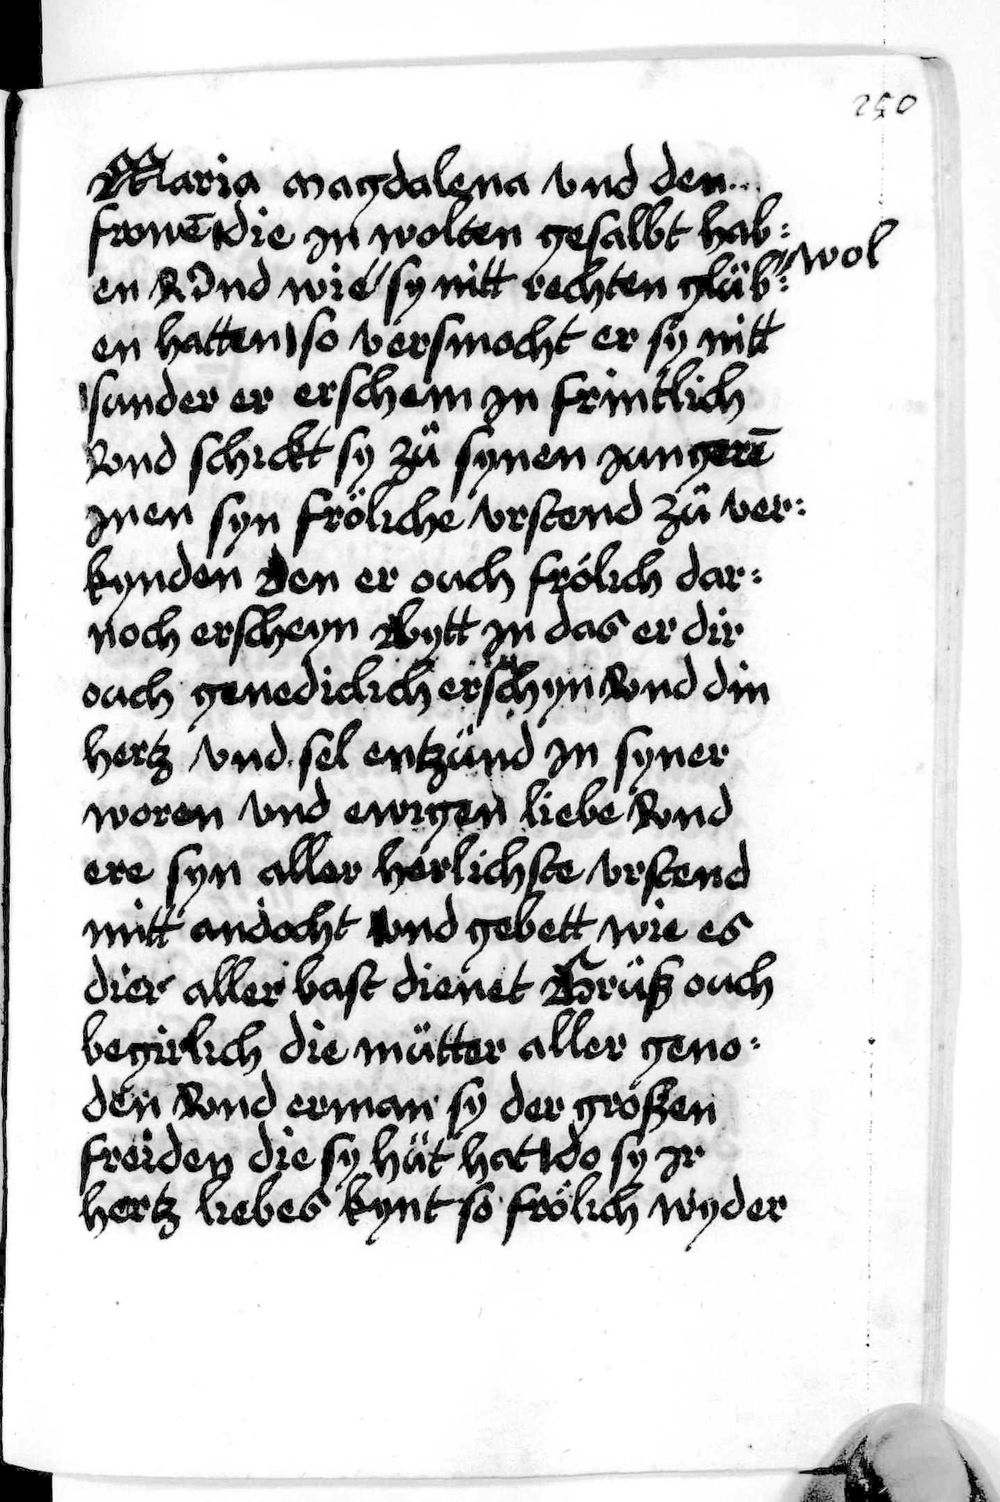 250
Maria magdalena vnd den
frowē die jn wolten gesalbt hab:
en Vnd wie // sy nitt rechten glůb:
// wol
en hatten so versmocht er sy nitt
sunder er erschein jn frintlich
Vnd schickt sy zů synen jungerē
jnen syn fröliche vrstend zů ver:
kynden Den er ouch frölich dar:
noch erscheyn Bytt jn das er dir
ouch genediclich erschyn Vnd din
hertz vnd sel entzünd jn syner
woren vnd ewigen liebe Vnd
ere syn aller herlichste vrstend
mitt andocht vnd gebett wie es
dier aller bast dienet Grůß ouch
begirlich die můtter aller geno:
den Vnd erman sy der großen
freiden die sy hüt hat do sy jr
hertz liebes kynt so frölich wyder